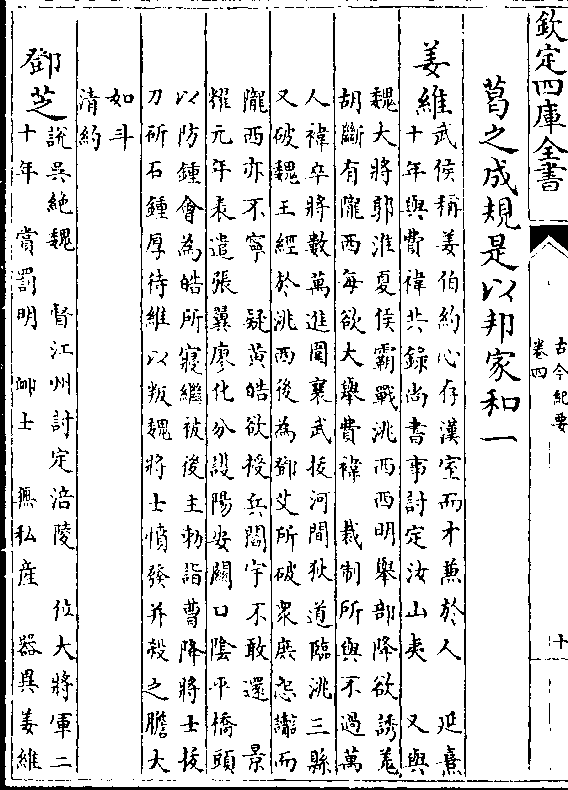 欽定四庫全書
古今紀要
卷四
十
葛之成規是以邦家和一
姜維
武侯稱姜伯約心存漢室而才兼於人 延熹
十年與費禕共録尚書事討定汶山夷 又與
魏大將郭淮夏侯霸戰洮西西明舉部降欲誘羗
胡斷有隴西每欲大舉費禕 裁制所與不過萬
人禕卒將數萬進圍襄武拔河間狄道臨洮三縣
又破魏王經於洮西後為鄧艾所破衆庶怨讟而
隴西亦不寧 疑黄皓欲授兵閻宇不敢還 景
耀元年表遣張翼廖化分設陽安關口陰平橋頭
以防鍾會為皓所寢繼被後主勅詣曹降將士拔
刀斫石鍾厚待維以叛魏將士憤發并殺之膽大
如斗
清約
鄧芝
說吳絶魏 督江州討定涪陵 位大將軍二
十年 賞罰明 䘏士 無私産 器異姜維